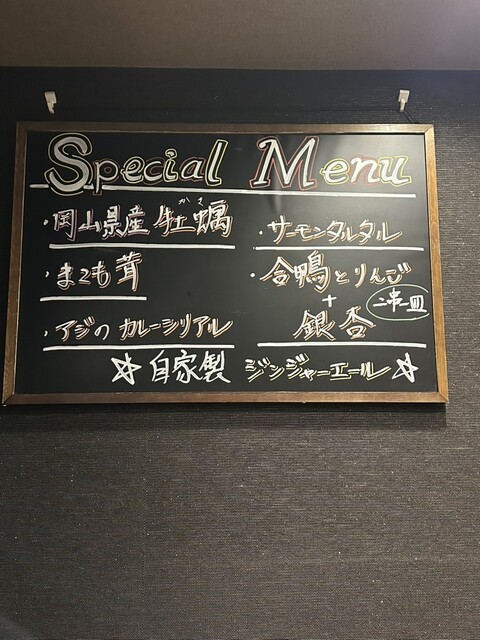 Special Menu
・岡山県産 牡蠣
かき
・まこも茸
・アジの カレーシリアル
・サーモンタルタル
・合鴨とりんご
+
銀杏
二串一皿
☆ 自家製 ジンジャーエール ☆